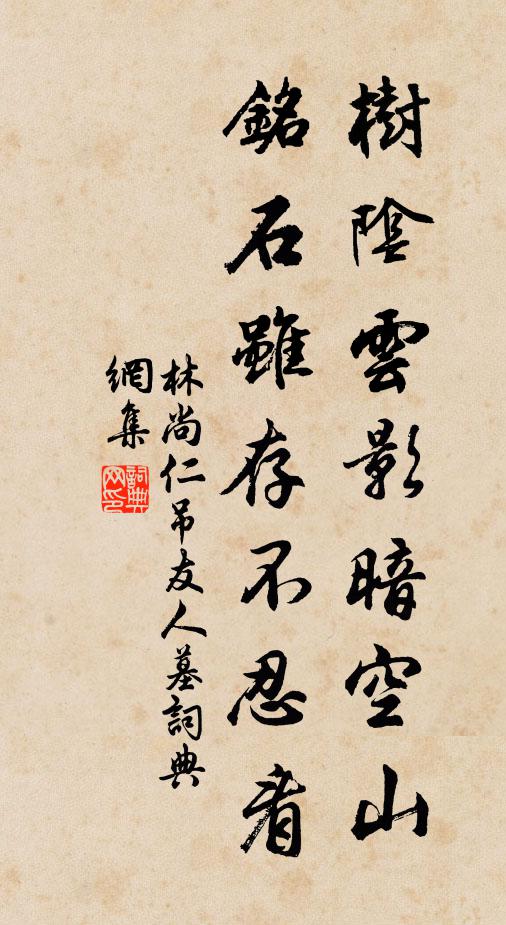 樹陰雲影暗空山
銘石雖存不忍看
林尚仁吊友人墓詞典
網集
詞典网印